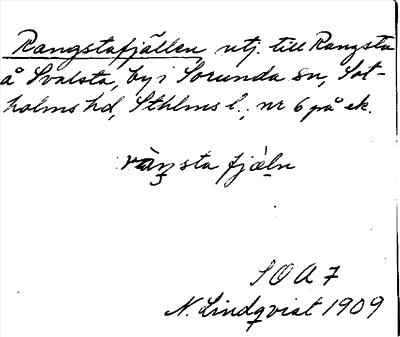 Rangstafjällen, utj. till Rangsta
å Svalsta, by i Sorunda sn, Sot-
holms hd, Sthlms l.; nr 6 på ek.
ràŋsta fjæ̀ln
S O A 7
N. Lindqvist 1909